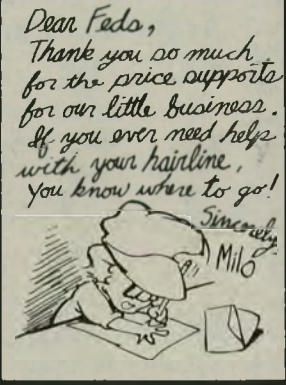 Dear Feds,
Thank you so much
for the price supports
for our little business.
If you ever need help
with your hairline,
you know where to go!
Sincerely
Milo